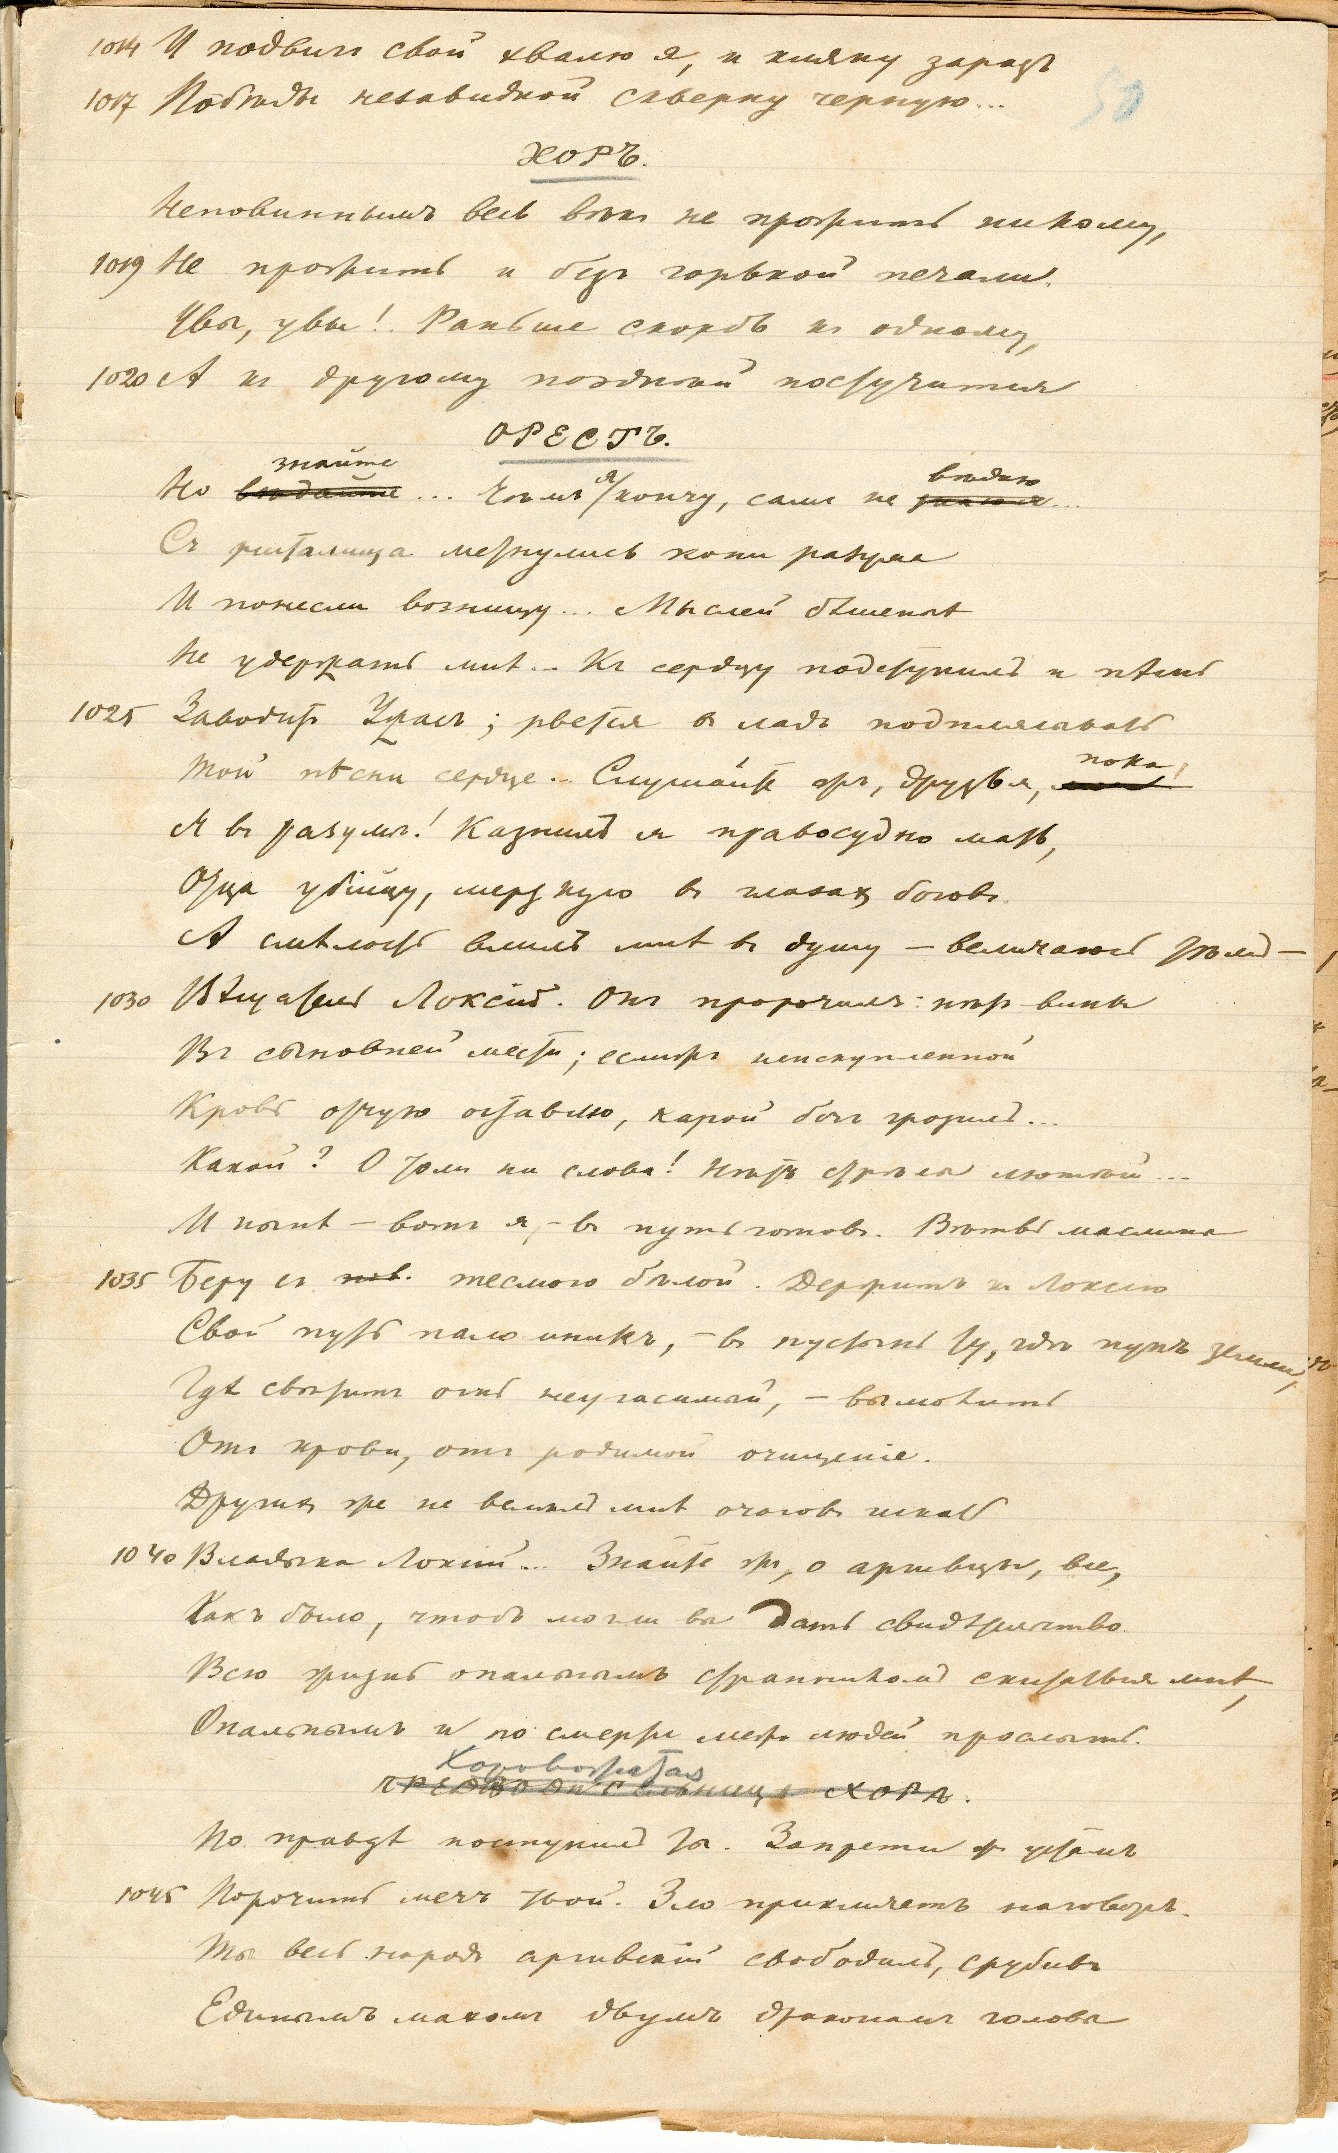 1014 И подвигъ свой хвалю я, и кляну заразъ
50
1017 Побѣды незавидной скверну черную...
ХОРЪ.
Неповиннымъ весь вѣкъ не прожить никому,
1019 Не прожить и безъ горькой печали.
Увы, увы! Раньше скорбь къ одному,
1020 А къ другому поздней постучится
ОРЕСТЪ.
знайте вѣдаю
Но вѣдайте... Чѣмъ я кончу, самъ не знаю...
Съ ристалища метнулись кони разума
И понесли возницу... Мыслей бѣшеныхъ
Не удержать мнѣ... Къ сердцу подступилъ и пѣснь
1025 Заводитъ Ужасъ; рвется въ ладъ подплясывать
Той пѣсни сердце... Слушайте жъ, друзья, пока,
Я въ разумѣ! Казнилъ я правосудно мать,
Отца убійцу, мерзкую въ глазахъ боговъ.
А смѣлость влилъ мнѣ въ душу – величаюсь тѣмъ –
1030 Вѣщатель Локсій. Онъ пророчилъ: нѣтъ вины
Въ сыновней мести; если жъ неискупленной
Кровь отчую оставлю, карой богъ грозилъ...
Какой? О томъ ни слова! Нѣтъ стрѣлы лютѣй...
И нынѣ – вотъ я, – въ путь готовъ. Вѣтвь маслины
Беру съ тесмою бѣлой. Держитъ къ Локсію
1035
Свой путь паломникъ, – въ пустынь ту, гдѣ пупъ земли,
Гдѣ свѣтитъ огнь неугасимый, – вымолить
Отъ крови, отъ родимой очищеніе.
Другихъ же не велѣлъ мнѣ очаговъ искать
1040 Владыка Локсій... Знайте жъ, о аргивцы, все,
Какъ было, чтобъ могли вы дать свидѣтельство.
Всю жизнь опальнымъ странникомъ скитаться мнѣ,
Опальнымъ и по смерти межъ людей прослыть.
Хоровожатая
ПРЕДВОДИТЕЛЬНИЦА ХОРА.
По правдѣ поступилъ ты. Запрети жъ устамъ
1045 Порочить мечъ твой. Зло прикличетъ наговоръ.
Ты весь народъ аргивскій свободилъ, срубивъ
Единымъ махомъ двумъ драконамъ головы